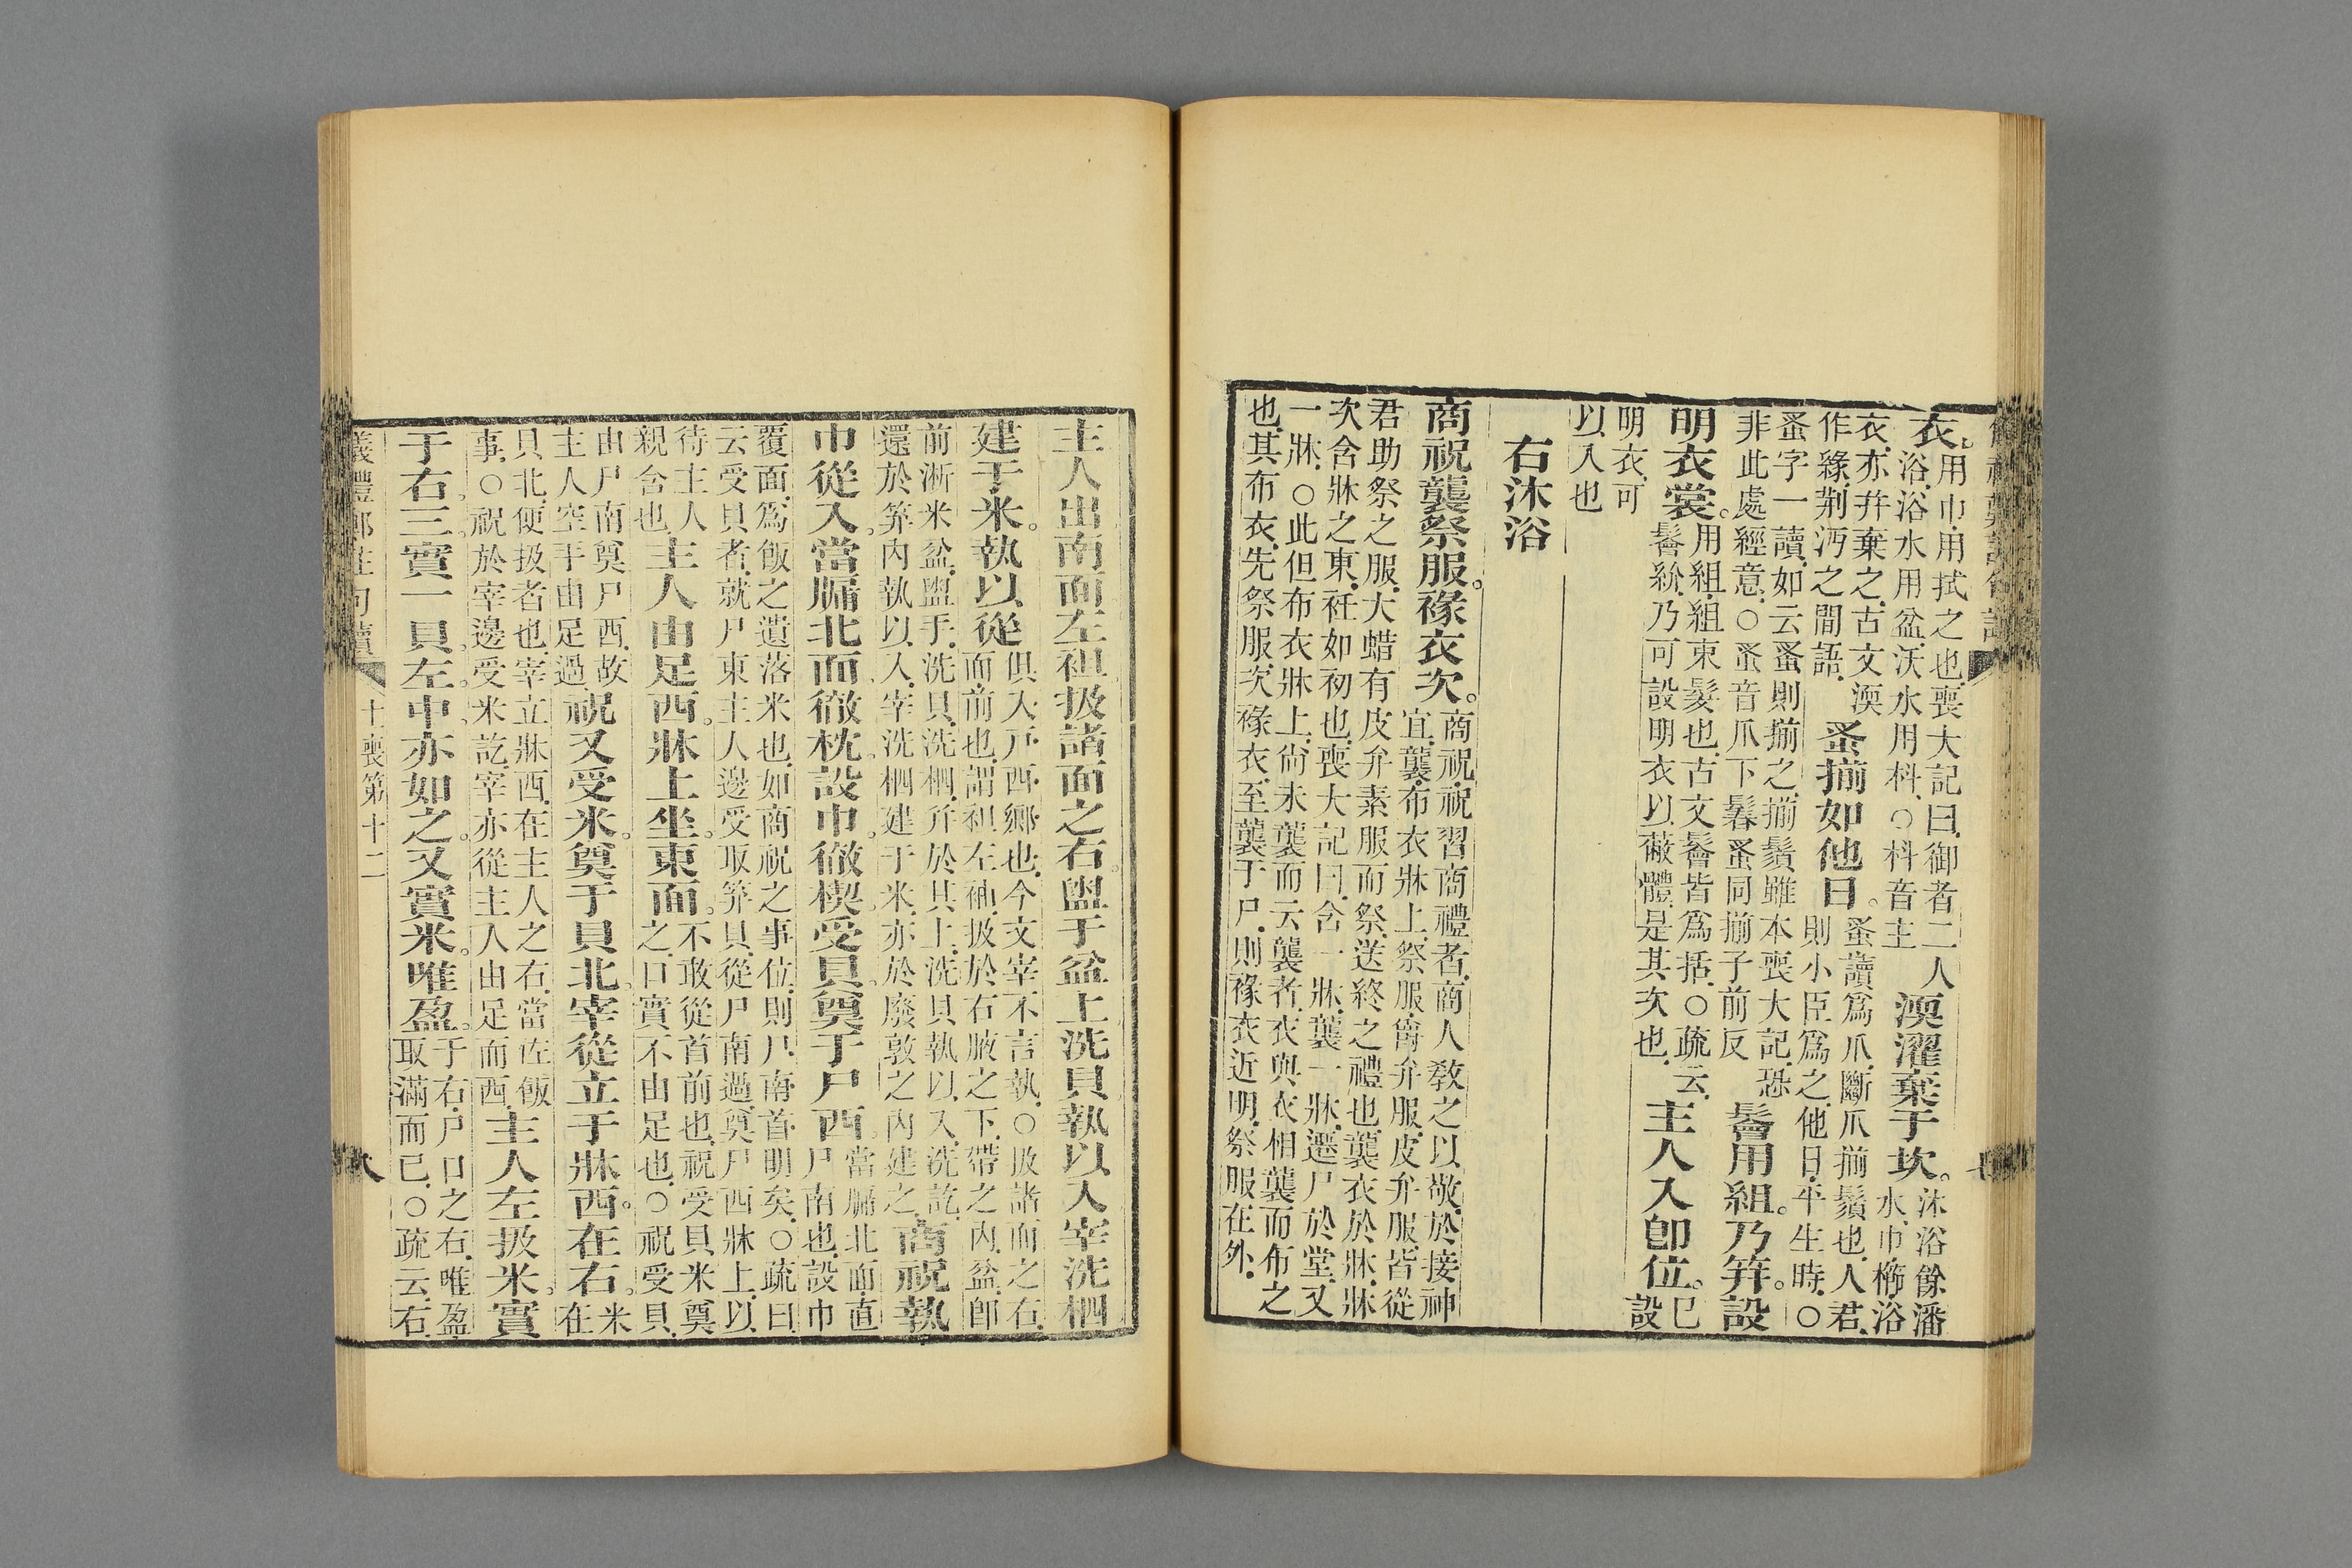 衣。用巾用拭之也.喪大記曰.御者二人
浴.浴水用盆.沃水用枓.○枓音主
渜濯棄于坎。沐浴餘潘
水.巾櫛.浴
衣.亦幷棄之.古文渜
作緣.荆沔之間語.
蚤揃如他日。蚤讀爲爪.斷爪揃鬚也.人君.
則小臣爲之.他日.平生時.○
蚤字一讀.如云蚤則揃之.揃鬚雖本喪大記.恐
非此處經意.○蚤音爪下鬊蚤同揃子前反
鬠用組。乃笄。設
明衣裳。用組.組束髮也.古文鬠皆爲括.○疏云.
鬠紒.乃可設明衣以蔽體.是其次也.
主人入卽位。已
設
明衣.可
以入也
右沐浴
商祝襲祭服。褖衣次。商祝.祝習商禮者.商人敎之以敬.於接神
宜.襲.布衣牀上.祭服.爵弁服.皮弁服.皆從
君助祭之服.大蜡有皮弁素服而祭.送終之禮也.襲衣於牀.牀
次含牀之東.衽如初也.喪大記曰.含一牀.襲一牀.遷尸於堂.又
一牀.○此但布衣牀上.尙未襲.而云襲者.衣與衣相襲而布之
也.其布衣.先祭服.次褖衣.至襲于尸.則褖衣近明.祭服在外.
主人出南面左袒扱諸面之右。盥于盆上洗貝執以入宰洗柶
建于米。執以從俱入戸.西鄉也.今文宰不言執.○扱諸面之右.
面.前也.謂袒左袖.扱於右腋之下.帶之內.盆.卽
前淅米盆.盥手.洗貝.洗柶.幷於其上.洗貝執以入.洗訖.
還於笲內執以入.宰洗柶建于米.亦於廢敦之內建之.
商祝執
巾從入。當牖北面徹枕。設巾。徹楔。受貝。奠于尸西。當牖北面.直
尸南也.設巾
覆面.爲飯之遺落米也.如商祝之事位.則尸南首明矣.○疏曰
云受貝者.就尸東主人邊受取笲貝.從尸南過.奠尸西牀上.以
待主人
親含也.
主人由足西。牀上坐。東面。不敢從首前也.祝受貝米奠
之.口實不由足也.○祝受貝.
由尸南奠尸西.故
主人空手由足過.
祝又受米。奠于貝北。宰從立于牀西。在右。米
在
貝北.便扱者也.宰立牀西.在主人之右.當佐飯
事.○祝於宰邊受米訖.宰亦從主人由足而西.
主人左扱米。實
于右。三。實一貝。左。中。亦如之。又實米。唯盈。于右.尸口之右.唯盈.
取滿而已.○疏云.右.
十喪第十二